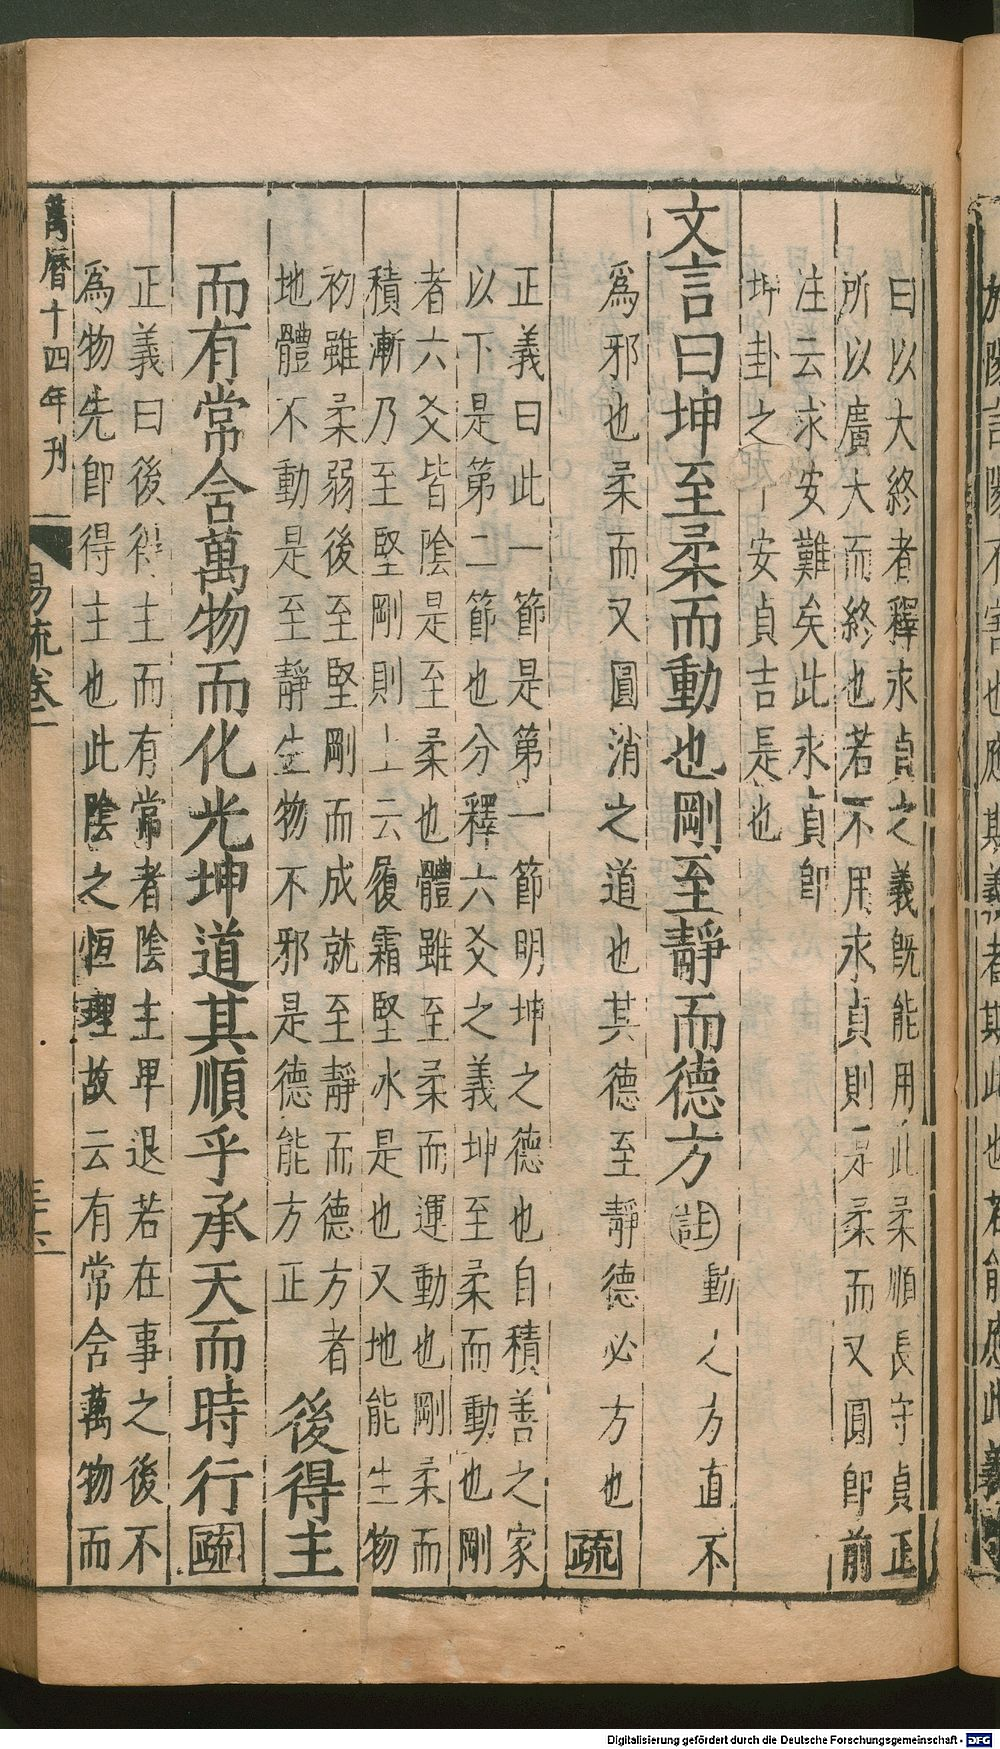 曰以大終者釋永貞之義既能用此柔順長守貞正
所以廣大而終也若不用永貞則是柔而又圓即前
注云求安難矣此永貞即
坤卦之 安貞吉是也
文言曰坤至柔而動也剛至靜而德方 註 動之方直不
為邪也柔而又圓消之道也其德至靜德必方也 疏
正義曰此一節是第一節明坤之德也自積善之家
以下是第二節也分釋六爻之義坤至柔而動也剛
者六爻皆陰是至柔也體雖至柔而運動也剛柔而
積漸乃至堅剛則上云履霜堅冰是也又地能生物
初雖柔弱後至堅剛而成就至靜而德方者
地體不動是至靜生物不邪是德能方正
後得主
而有常含萬物而化光坤道其順乎承天而時行 疏
正義曰後得主而有常者陰主卑退若在事之後不
為物先即得主也此陰之恒理故云有常含萬物而
萬曆十四年刊
易疏卷一
Digitalisierung gefördert durch die Deutsche Forschungsgemeinschaft - DFG